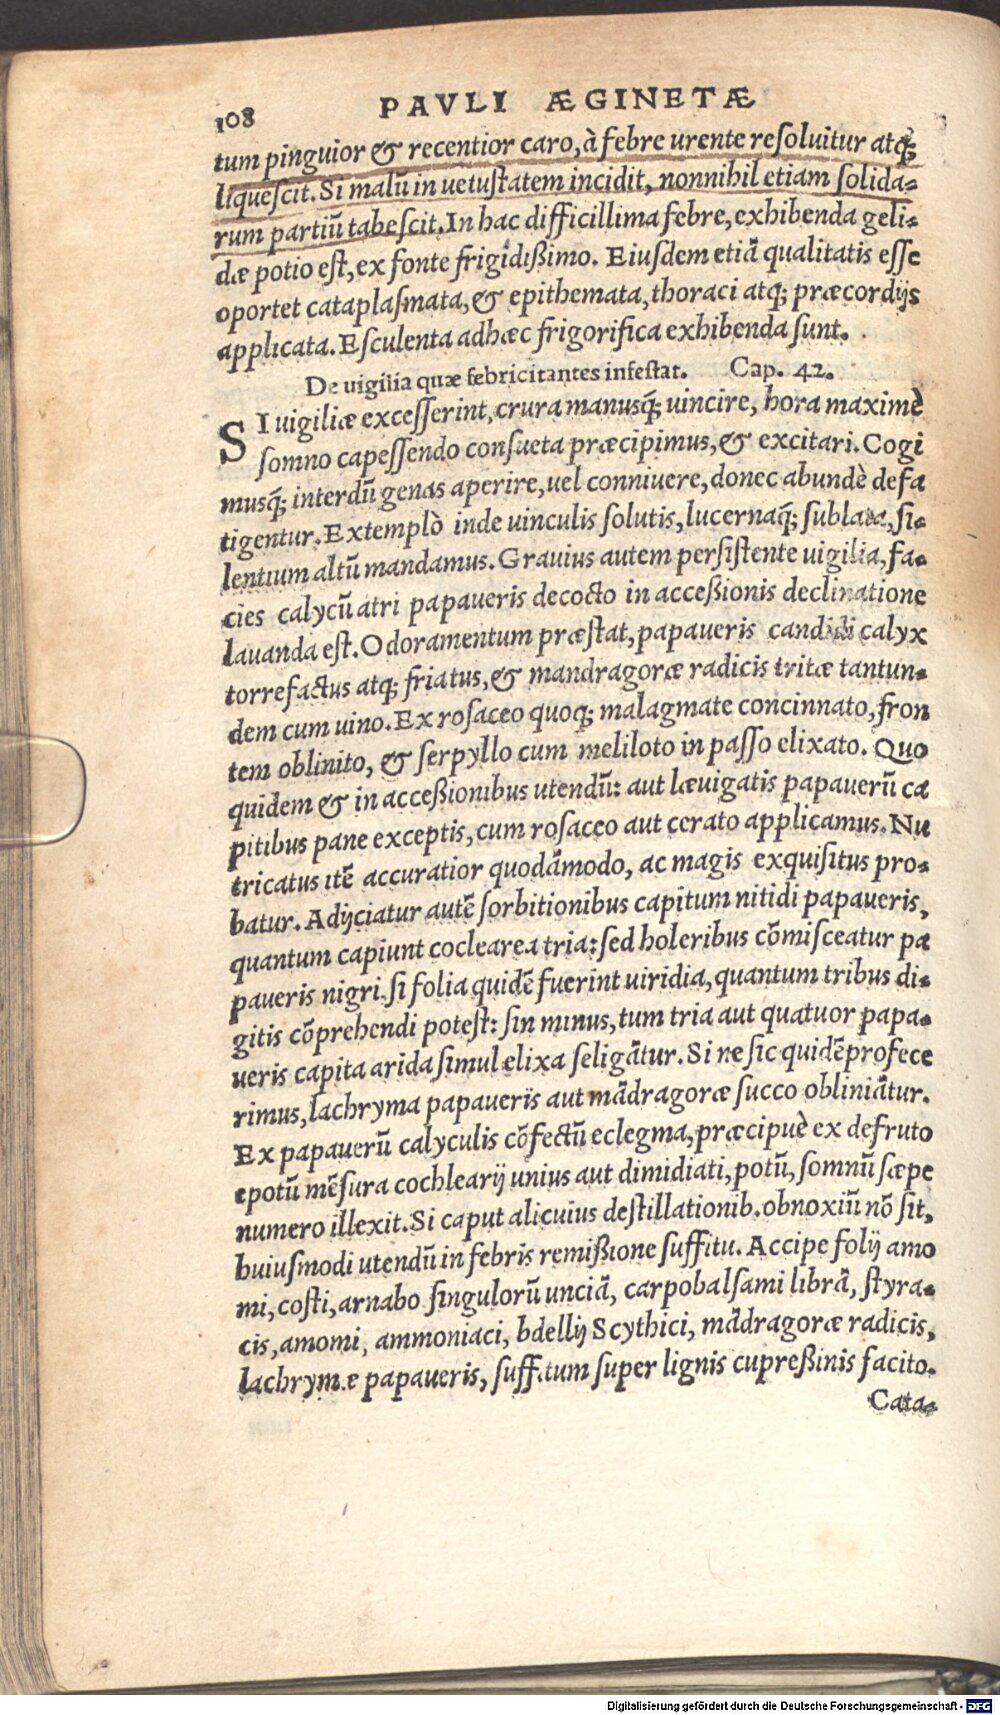 108 PAVLI ÆGINETÆ
tum pinguior & recentior caro, à febre urente resoluitur atq;
liquescit. Si malū in uetustatem incidit, nonnihil etiam solida-
rum partiū tabescit. In hac difficillima febre, exhibenda geli-
dæ potio est, ex fonte frigidißimo. Eiusdem etiā qualitatis esse
oportet cataplasmata, & epithemata, thoraci atq; præcordijs
applicata. Esculenta adhæc frigorifica exhibenda sunt.
De uigilia quæ febricitantes infestat. Cap. 42.
SI uigiliæ excesserint, crura manusq; uincire, hora maximè
somno capessendo consueta præcipimus, & excitari. Cogi
musq; interdū genas aperire, uel conniuere, donec abundè defa
tigentur. Extemplò inde uinculis solutis, lucernaq; sublata, si-
lentium altū mandamus. Grauius autem persistente uigilia, fa-
cies calycū atri papaueris decocto in acceßionis declinatione
lauanda est. Odoramentum præstat, papaueris candidi calyx
torrefactus atq; friatus, & mandragoræ radicis tritæ tantun-
dem cum uino. Ex rosaceo quoq; malagmate concinnato, fron
tem oblinito, & serpyllo cum meliloto in passo elixato. Quo
quidem & in acceßionibus utendū: aut læuigatis papauerū ca
pitibus pane exceptis, cum rosaceo aut cerato applicamus. Nu
tricatus itē accuratior quodāmodo, ac magis exquisitus pro-
batur. Adijciatur autē sorbitionibus capitum nitidi papaueris,
quantum capiunt coclearea tria: sed holeribus cōmisceatur pa
paueris nigri. si folia quidē fuerint uiridia, quantum tribus di-
gitis cōprehendi potest: sin minus, tum tria aut quatuor papa-
ueris capita arida simul elixa seligātur. Si ne sic quidē profece
rimus, lachryma papaueris aut mādragoræ succo obliniātur.
Ex papauerū calyculis cōfectū eclegma, præcipuè ex defruto
epotū mēsura cochlearij unius aut dimidiati, potū, somnū sæpe
numero illexit. Si caput alicuius destillationib. obnoxiū nō sit,
huiusmodi utendū in febris remißione suffitu. Accipe folij amo
mi, costi, arnabo singulorū unciā, carpobalsami librā, styra-
cis, amomi, ammoniaci, bdellij Scythici, mādragoræ radicis,
lachrymæ papaueris, suffitum super lignis cupreßinis facito.
Cata-
Digitalisierung gefördert durch die Deutsche Forschungsgemeinschaft - DFG